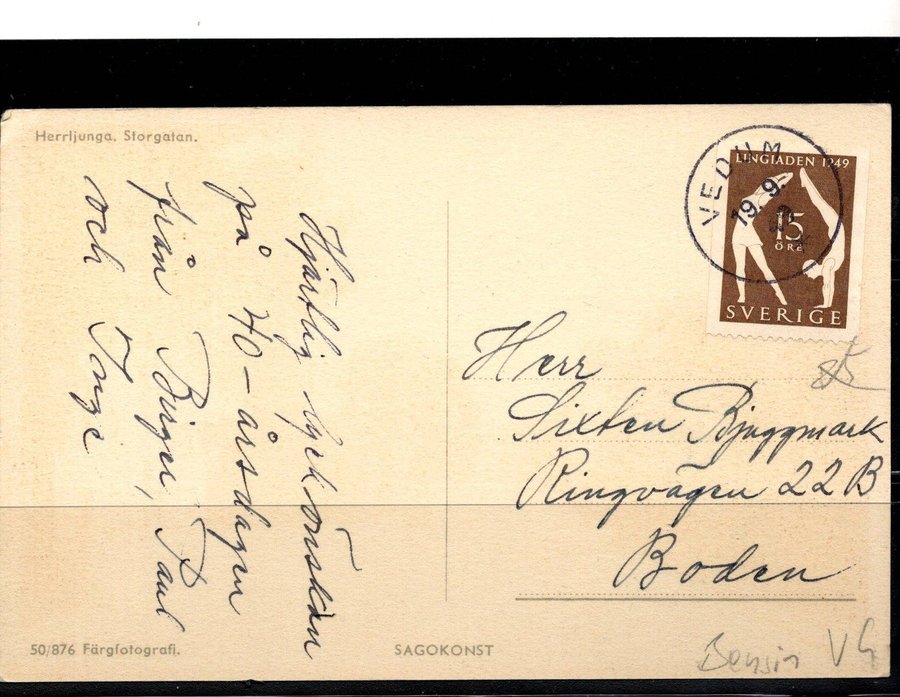 Herrljunga. Storgatan.
Hjärtlig lyckönskan
på 40-årsdagen
från Birger, Paul
och Inge
VEDUM
19.9.
LINGIADEN 1949
15
ÖRE
SVERIGE
Herr
Sixten Bjuggmark
Ringvägen 22 B
Boden
50/876 Färgfotografi.
SAGOKONST
Bensin VG